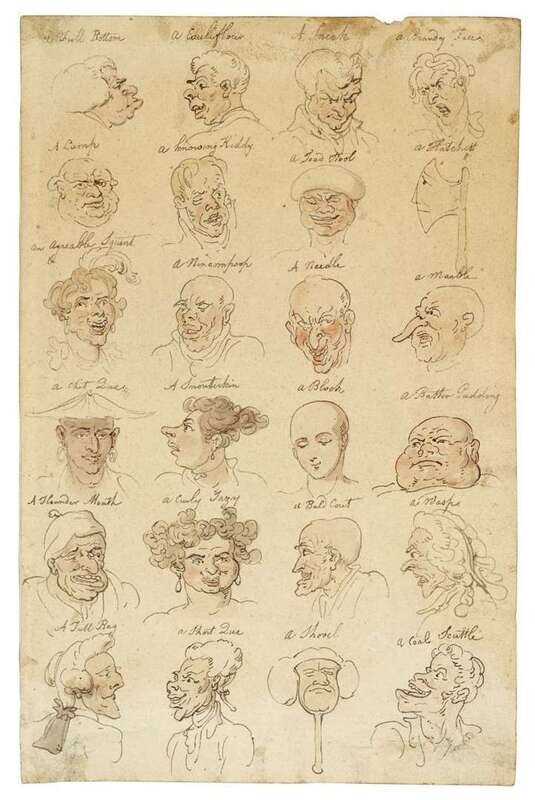 a Full Bottom
a Cauliflour
A Sneak
a Brandy Face
A Lamp
a Knowing Kiddy
a Toad Stool
a Hatchett
an Agreable Squint
a Nincompoop
A Needle
a Marble
A Smouterkin
a Block
a Batter Pudding
A Flounder Mouth
a Curly
a Bald Cout
a Wasp
A Full Bag
a Short Que
a Shovel
a Coal Scuttle